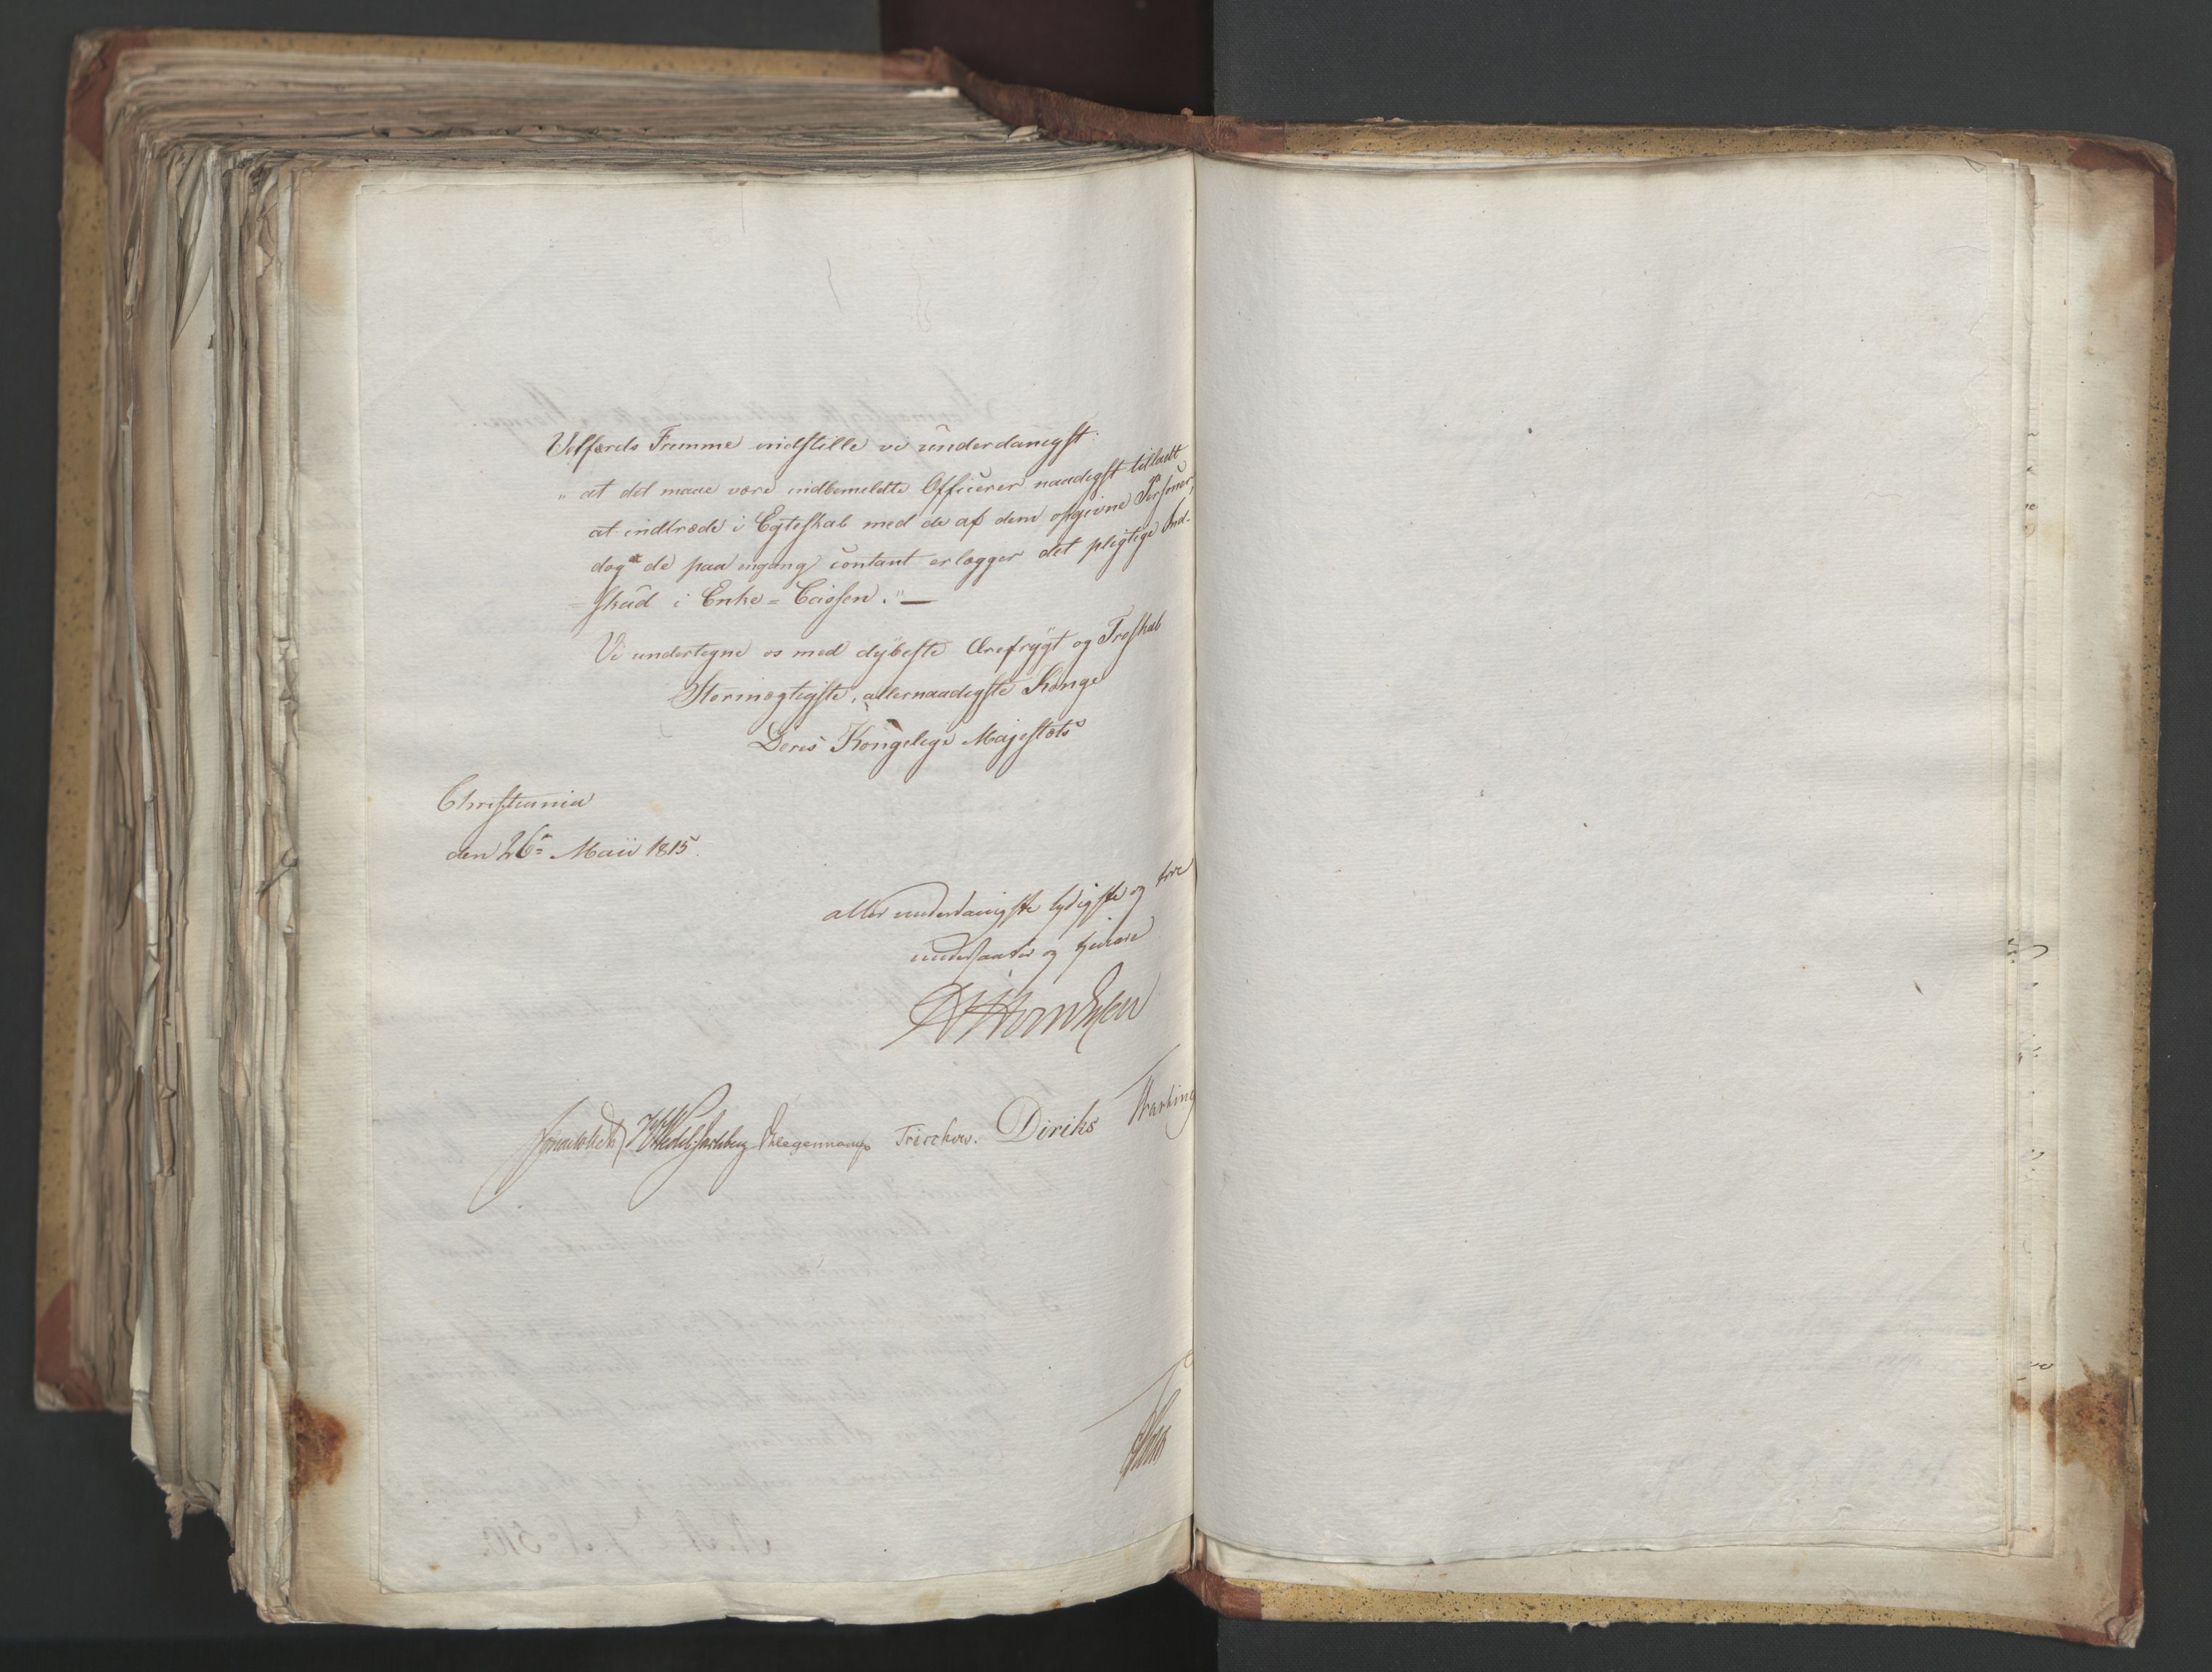 Velfærds Fremme indstille vi underdanigst:
„at det maae være indbemeldte Officerer naadigst tilladt
at indtræde i Egteskab med de af dem opgivne Personer,
dog at de paa engang contant erlægger det pligtige Ind-
skud i Enke-Cassen." —
Vi undertegne os med dybeste Ærefrygt og Troskab
Stormægtigste, allernaadigste Konge
Deres Kongelige Majestæts
Christiania
den 26de Maii 1815.
allerunderdanigste lydigste og troe
undersaatter og tjenere
Sommerhielm Wedel Jarlsberg Hegermann Treschow. Diriks Krarting